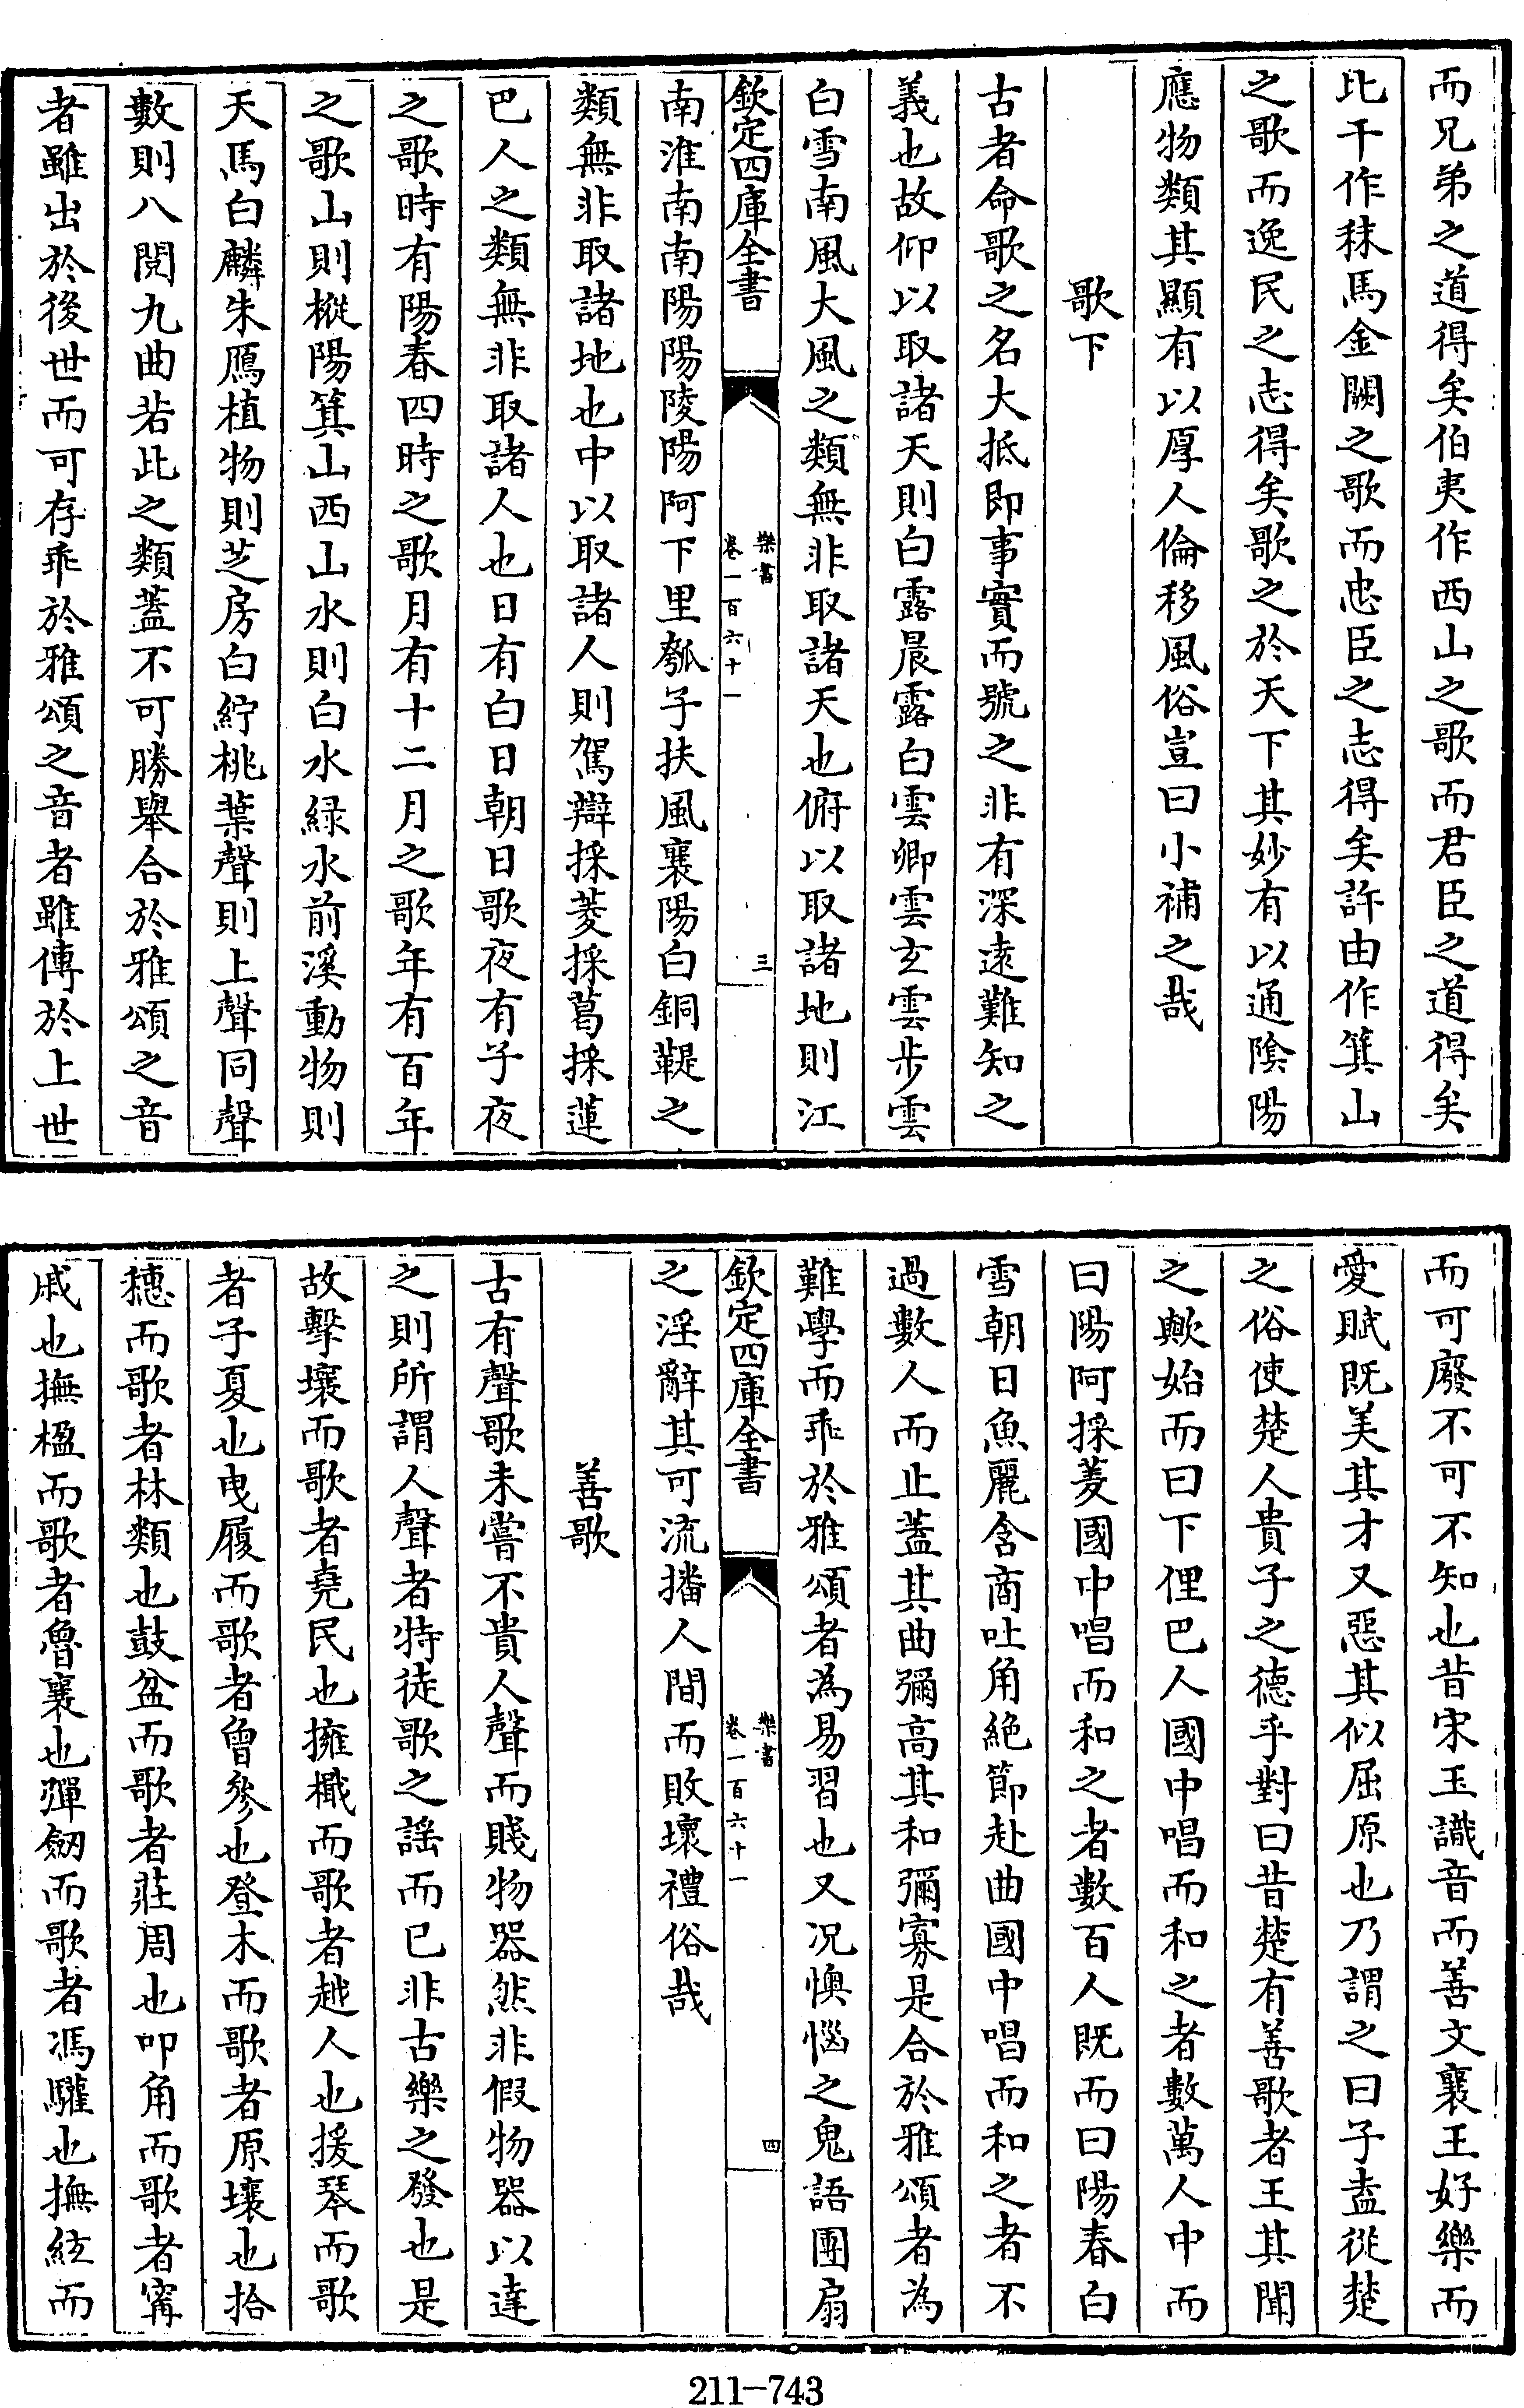 而兄弟之道得矣伯夷作西山之歌而君臣之道得矣
比干作秣馬金闕之歌而忠臣之志得矣許由作箕山
之歌而逸民之志得矣歌之於天下其妙有以通隂陽
應物類其顯有以厚人倫移風俗豈曰小補之哉
歌下
古者命歌之名大抵即事實而號之非有深逺難知之
義也故仰以取諸天則白露晨露白雲卿雲玄雲步雲
白雪南風大風之類無非取諸天也俯以取諸地則江
欽定四庫全書
樂書
卷一百六十一
三
南淮南南陽陽陵陽阿下里瓠子扶風襄陽白銅鞮之
類無非取諸地也中以取諸人則駕辯採菱採葛採蓮
巴人之類無非取諸人也日有白日朝日歌夜有子夜
之歌時有陽春四時之歌月有十二月之歌年有百年
之歌山則樅陽箕山西山水則白水緑水前溪動物則
天馬白麟朱鴈植物則芝房白紵桃葉聲則上聲同聲
數則八閱九曲若此之類蓋不可勝舉合於雅頌之音
者雖出於後世而可存乖於雅頌之音者雖傳於上世
而可廢不可不知也昔宋玉識音而善文襄王好樂而
愛賦既美其才又惡其似屈原也乃謂之曰子盍從楚
之俗使楚人貴子之德乎對曰昔楚有善歌者王其聞
之歟始而曰下俚巴人國中唱而和之者數萬人中而
曰陽阿採菱國中唱而和之者數百人既而曰陽春白
雪朝日魚麗含商吐角絶節赴曲國中唱而和之者不
過數人而止蓋其曲彌高其和彌寡是合於雅頌者為
難學而乖於雅頌者為易習也又况懊惱之鬼語團扇
欽定四庫全書
樂書
卷一百六十一
四
之淫辭其可流播人間而敗壞禮俗哉
善歌
古有聲歌未嘗不貴人聲而賤物器然非假物器以達
之則所謂人聲者特徒歌之謡而已非古樂之發也是
故擊壤而歌者堯民也擁檝而歌者越人也援琴而歌
者子夏也曵履而歌者曾參也登木而歌者原壤也拾
穗而歌者林類也鼓盆而歌者莊周也叩角而歌者寗
戚也撫楹而歌者魯襄也彈劒而歌者馮驩也撫絃而
211-743